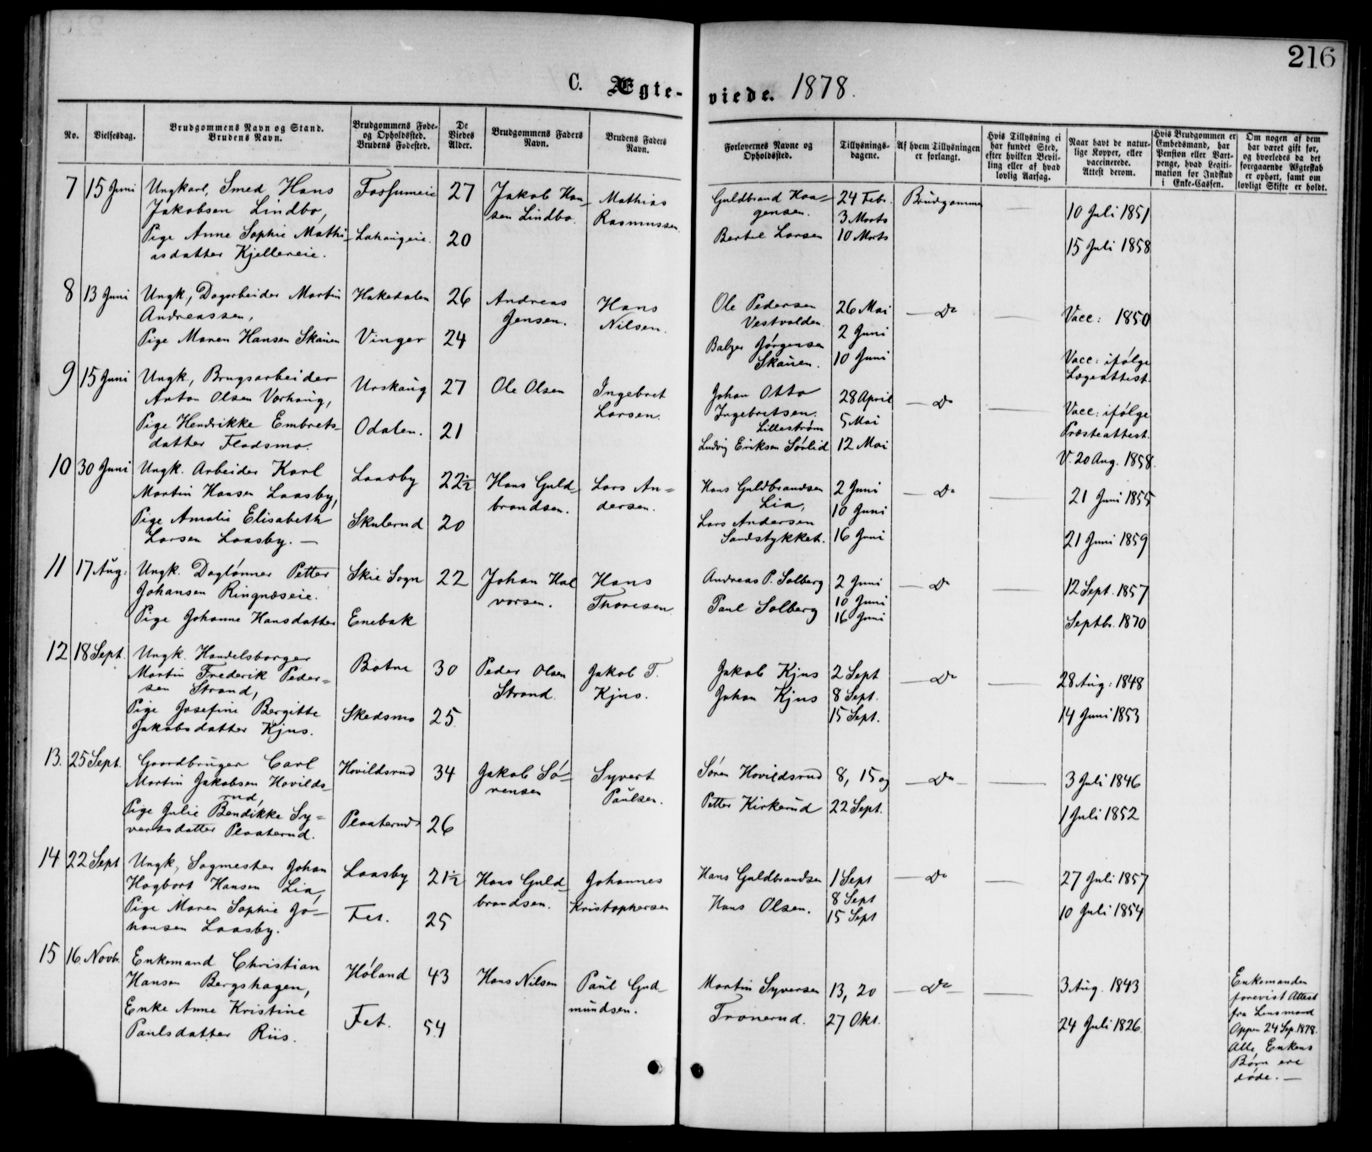 216
C. Ægte-viede. 1878.
No.
Vielsesdag.
Brudgommens Navn og Stand.
Brudens Navn.
Brudgommens Føde-
og Opholdssted.
Brudens Fødested.
De
Viedes
Alder.
Brudgommens Faders
Navn.
Brudens Faders
Navn.
Forlovernes Navne og
Opholdssted.
Tillysnings-
dagene.
Af hvem Tillysningen
er forlangt.
Hvis Tillysning ei
har fundet Sted,
efter hvilken Bevil-
ling eller af hvad
lovlig Aarsag.
Naar havt de natur-
lige Kopper, eller
vaccinerede.
Attest derom.
Hvis Brudgommen er
Embedsmand, har
Pension eller Vart-
penge, hvad Legiti-
mation for Indskud
i Enke-Cassen.
Om nogen af dem
har været gift før,
og hvorledes da det
foregaaende Ægteskab
er ophørt, samt om
lovligt Skifte er holdt.
7 15 Juni
Ungkarl, Smed Hans
Jakobsen Lindbo,
Pige Anne Sophie Mathi-
asdatter Kjellereie.
Fossumeie
Lahaugeie.
27
20
Jakob Han-
sen Lindbo.
Mathias
Rasmussen.
Guldbrand Haa-
gensen.
Bertel Larsen
24 Feb.
3 Marts
10 Marts
Brudgommen
10 Juli 1851
15 Juli 1858
8 13 Juni
Ungk, Dagarbeider Martin
Andreassen,
Pige Maren Hansen Skauen
Hakedalen
Vinger
26
24
Andreas
Jensen.
Hans
Nilsen.
Ole Pedersen
Vestvolden
Balzer Jørgensen
Skauen.
26 Mai
2 Juni
10 Juni
Do
Vacc: 1850
Vacc: ifølge
Lægeattest.
9 15 Juni
Ungk, Brugsarbeider
Anton Olsen Varhaug,
Pige Hendrikke Embrets-
datter Fladsmo.
Urskaug
Odalen.
27
21
Ole Olsen
Ingebret
Larsen.
Johan Otto
Ingebretsen
Lillestrøm
Ludvig Eriksen Sørlid
28 April
5 Mai
12 Mai
Do
Vacc: ifølge
Præsteattest.
V. 20 Aug. 1858.
10 30 Juni
Ungk. Arbeider Karl
Martin Hansen Laasby,
Pige Amalie Elisabeth
Larsen Laasby. —
Laasby
Skulerud
22½
20
Hans Guld-
brandsen.
Lars An-
dersen.
Hans Guldbrandsen
Lia,
Lars Andersen
Sandstykket.
2 Juni
10 Juni
16 Juni
Do
21 Juni 1855
21 Juni 1859
11 17 Aug.
Ungk. Daglønner Petter
Johansen Ringnæseie.
Pige Johanne Hansdatter
Skie Sogn
Enebak
22
Johan Hal
vorsen.
Hans
Thoresen
Andreas P. Solberg
Paul Solberg
2 Juni
10 Juni
16 Juni
Do
12 Sept. 1857
Septbr. 1870
12 18 Sept.
Ungk. Handelsborger
Martin Frederik Peder-
sen Strand,
Pige Josefine Bergitte
Jakobsdatter Kjus.
Botne
Skedsmo
30
25.
Peder Olsen
Strand.
Jakob T.
Kjus.
Jakob Kjus
Johan Kjus
2 Sept
8 Sept.
15 Sept.
Do
28 Aug: 1848
14 Juni 1853
13. 25 Sept.
Gaardbruger Carl
Martin Jakobsen Hovilds-
rud,
Pige Julie Bendikke Sy-
vertsdatter Plaaterud.
Hovildsrud
Plaaterud
34
26
Jakob Sø-
rensen
Syvert
Paulsen.
Søren Hovildsrud
Petter Kirkerud
8, 15 og
22 Sept.
Do
3 Juli 1846
1 Juli 1852
14 22 Sept
Ungk, Sagmester Johan
Hagbart Hansen Lia,
Pige Maren Sophie Jo-
hansen Laasby.
Laasby
Fet.
21½
25
Hans Guld-
brandsen.
Johannes
Kristophersen
Hans Guldbrandsen
Hans Olsen.
1 Sept
8 Sept
15 Sept
Do
27 Juli 1857
10 Juli 1854
15 16 Novb.
Enkemand Christian
Hansen Bergshagen,
Enke Anne Kristine
Paulsdatter Riis.
Høland
Fet.
43
54
Hans Nilsen
Paul Gud-
mundsen.
Martin Syversen
Tronerud.
13, 20
27 Okt.
Do
3 Aug. 1843
24 Juli 1826
Enkemanden
forevist Attest
fra Lensmand
Oppen 24 Sep. 1878.
Alle Enkens
Børn ere
døde. —